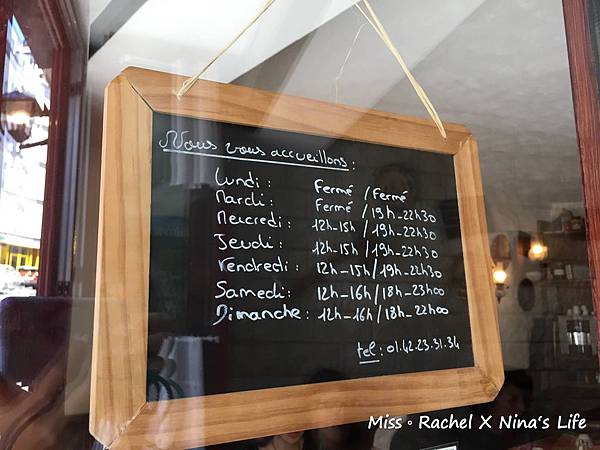 Nous vous accueillons :
Lundi : Fermé / Fermé
Mardi : Fermé / 19h_22h30
Mercredi : 12h-15h / 19h_22h30
Jeudi : 12h-15h / 19h_22h30
Vendredi : 12h_15h / 19h_22h30
Samedi : 12h_16h / 18h_23h00
Dimanche : 12h_16h / 18h_22h00
tel : 01.42.23.31.34
Miss。Rachel X Nina's Life